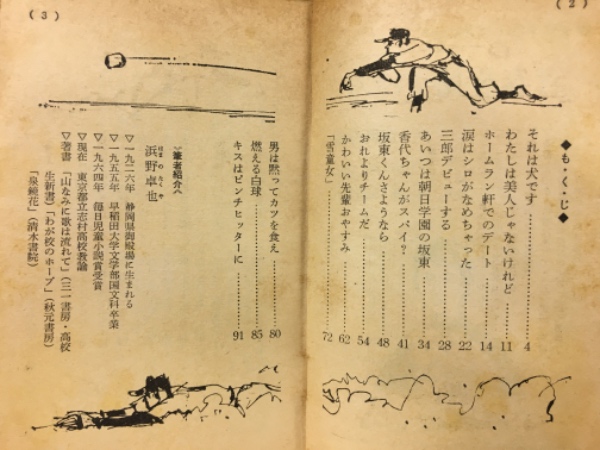 (2)
◆も・く・じ◆
それは犬です……4
わたしは美人じゃないけれど……11
ホームラン軒でのデート……14
涙はシロがなめちゃった……22
三郎デビューする……28
あいつは朝日学園の坂東……34
香代ちゃんがスパイ?……41
坂東くんさようなら……48
おれよりチームだ……54
かわいい先輩おやすみ……62
「雪童女」……72
(3)
男は黙ってカツを食え……80
燃える白球……85
キスはピンチヒッターに……91
〉筆者紹介〈
浜野卓也
はまのたくや
▽一九二六年 静岡県御殿場に生まれる
▽一九五五年 早稲田大学文学部国文科卒業
▽一九六四年 毎日児童小説賞受賞
▽現在 東京都立志村高校教諭
▽著書 「山なみに歌は流れて」(三一書房・高校
生新書)「わが校のホープ」(秋元書房)
「泉鏡花」(清水書院)